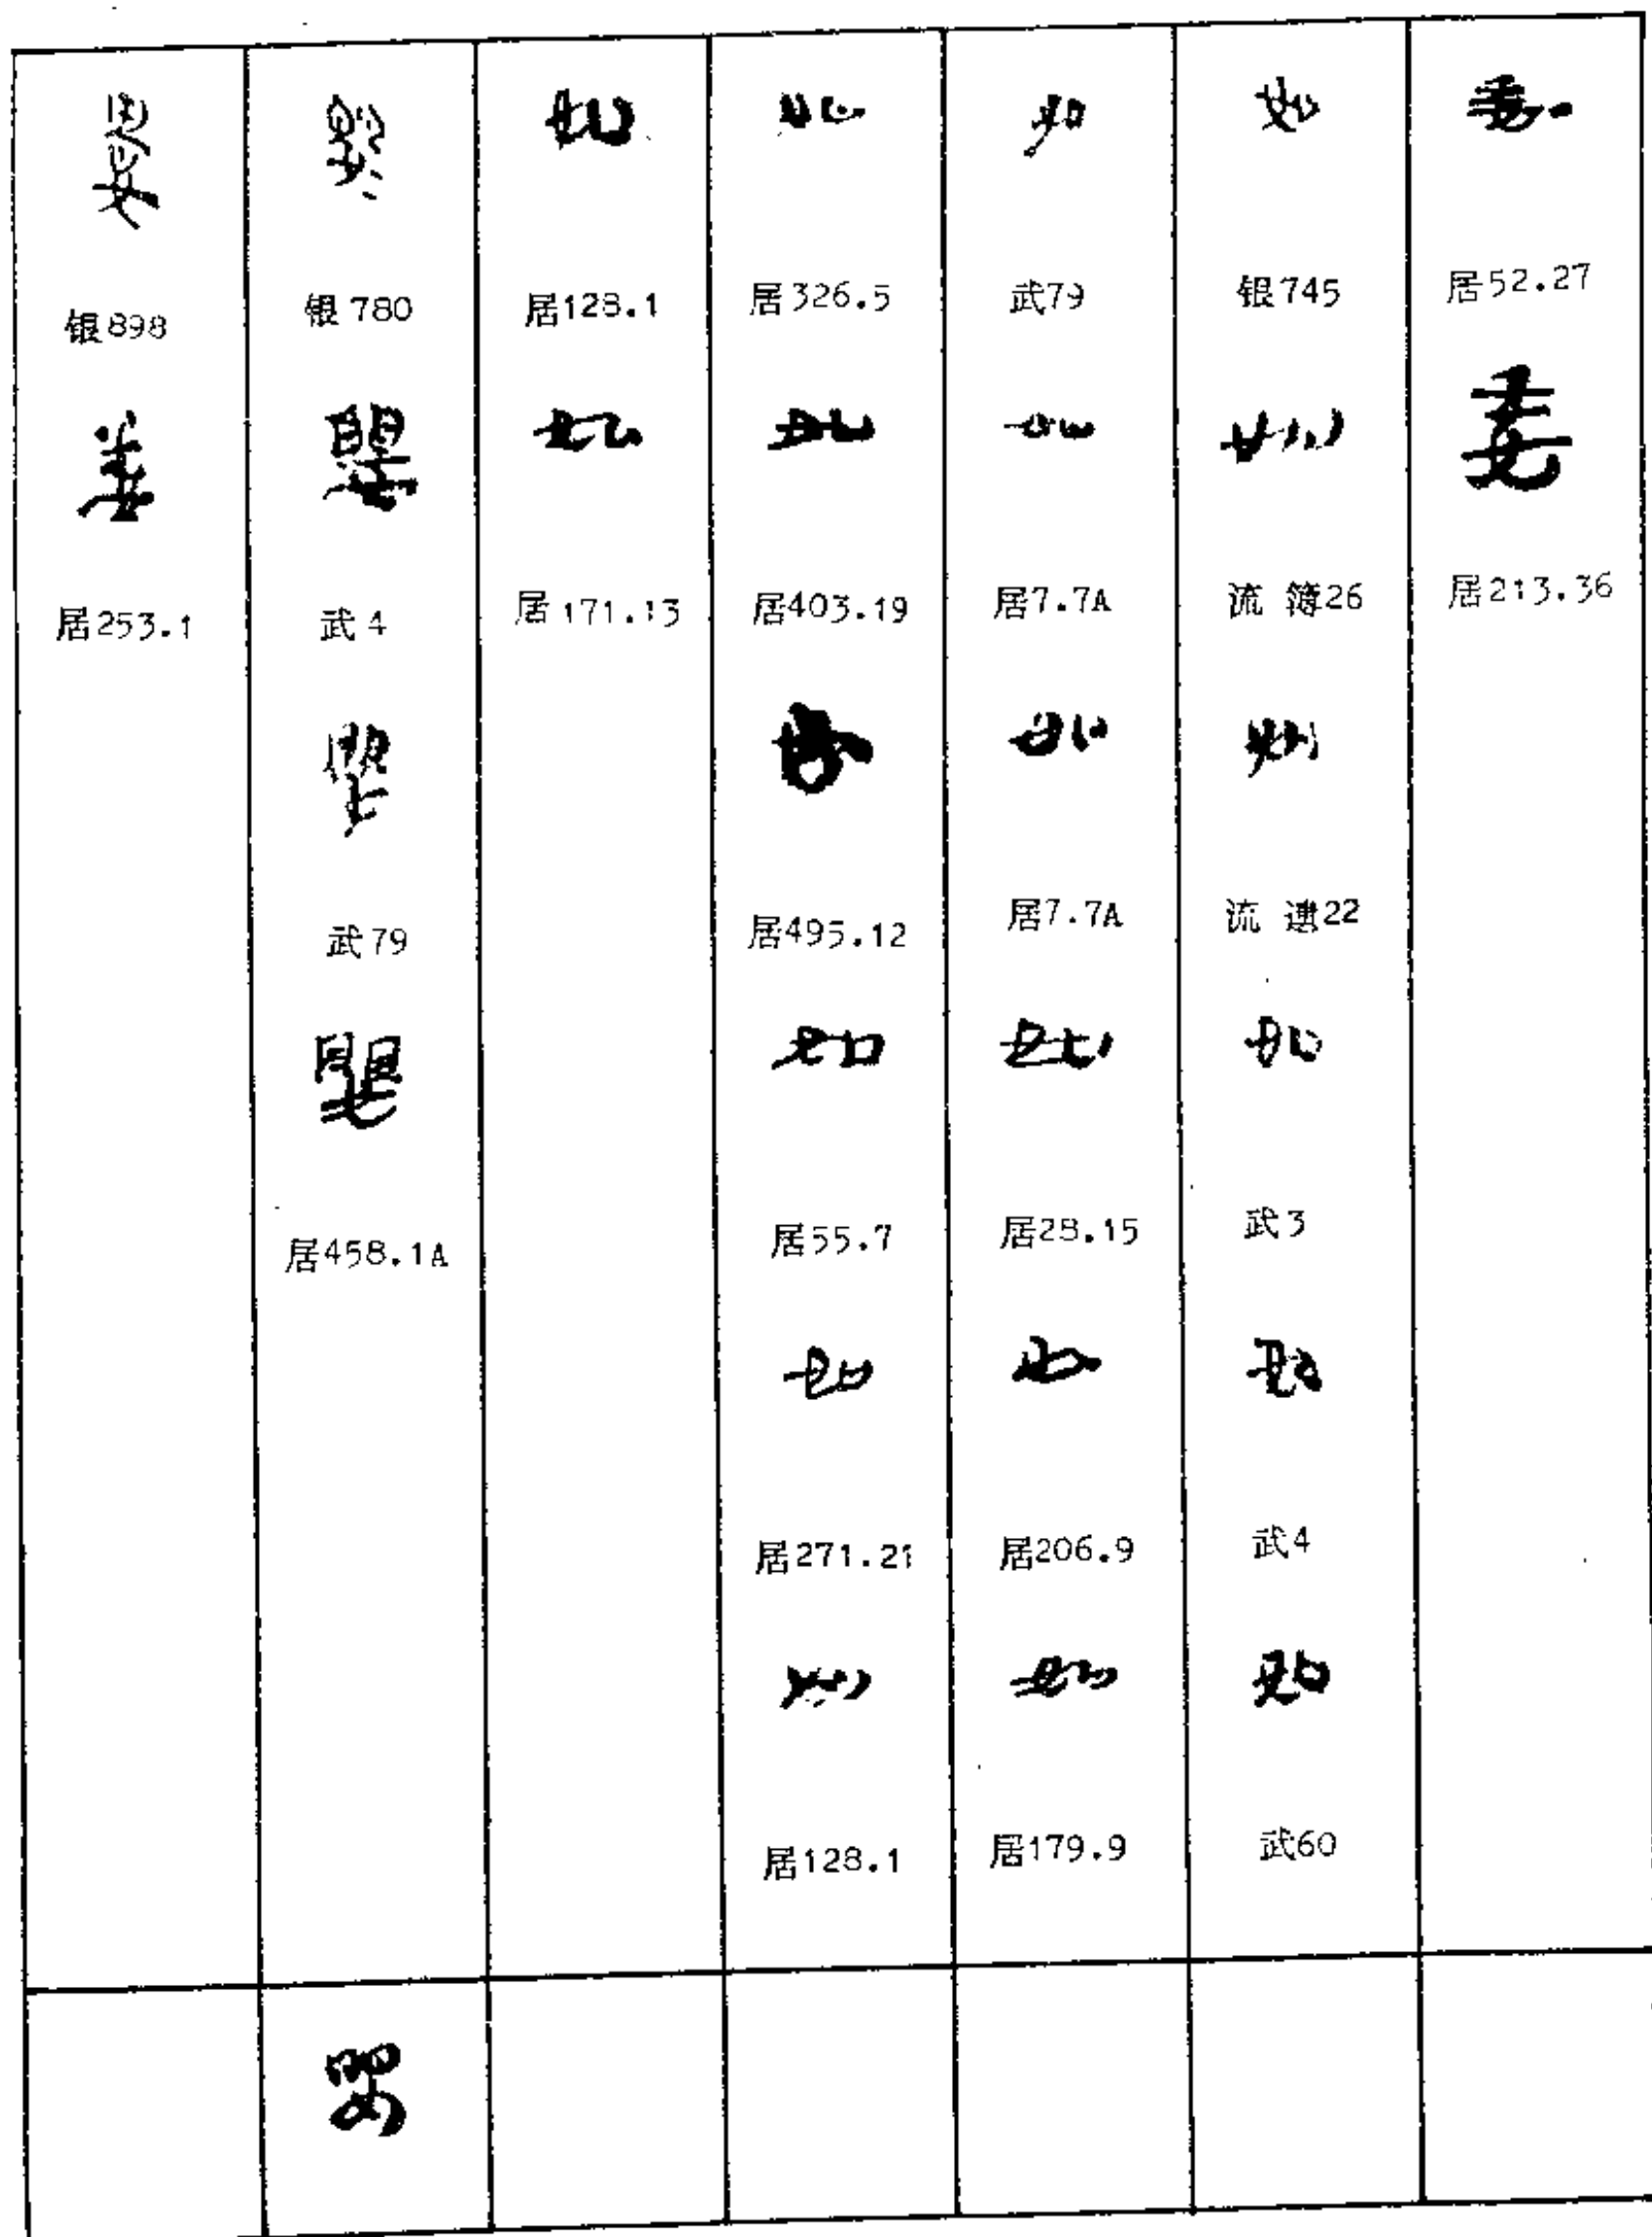 委
居52.27
委
居213.36
如
银745
如
流 簿26
如
流 遗22
如
武3
如
武4
如
武60
如
武79
如
居7.7A
如
居7.7A
如
居28.15
如
居206.9
如
居179.9
如
居326.5
如
居403.19
居495.12
如
居55.7
如
居271.21
如
居128.1
如
居128.1
如
居171.13
婴
银780
婴
武4
婴
武79
婴
居458.1A
婴
银898
姜
居253.1